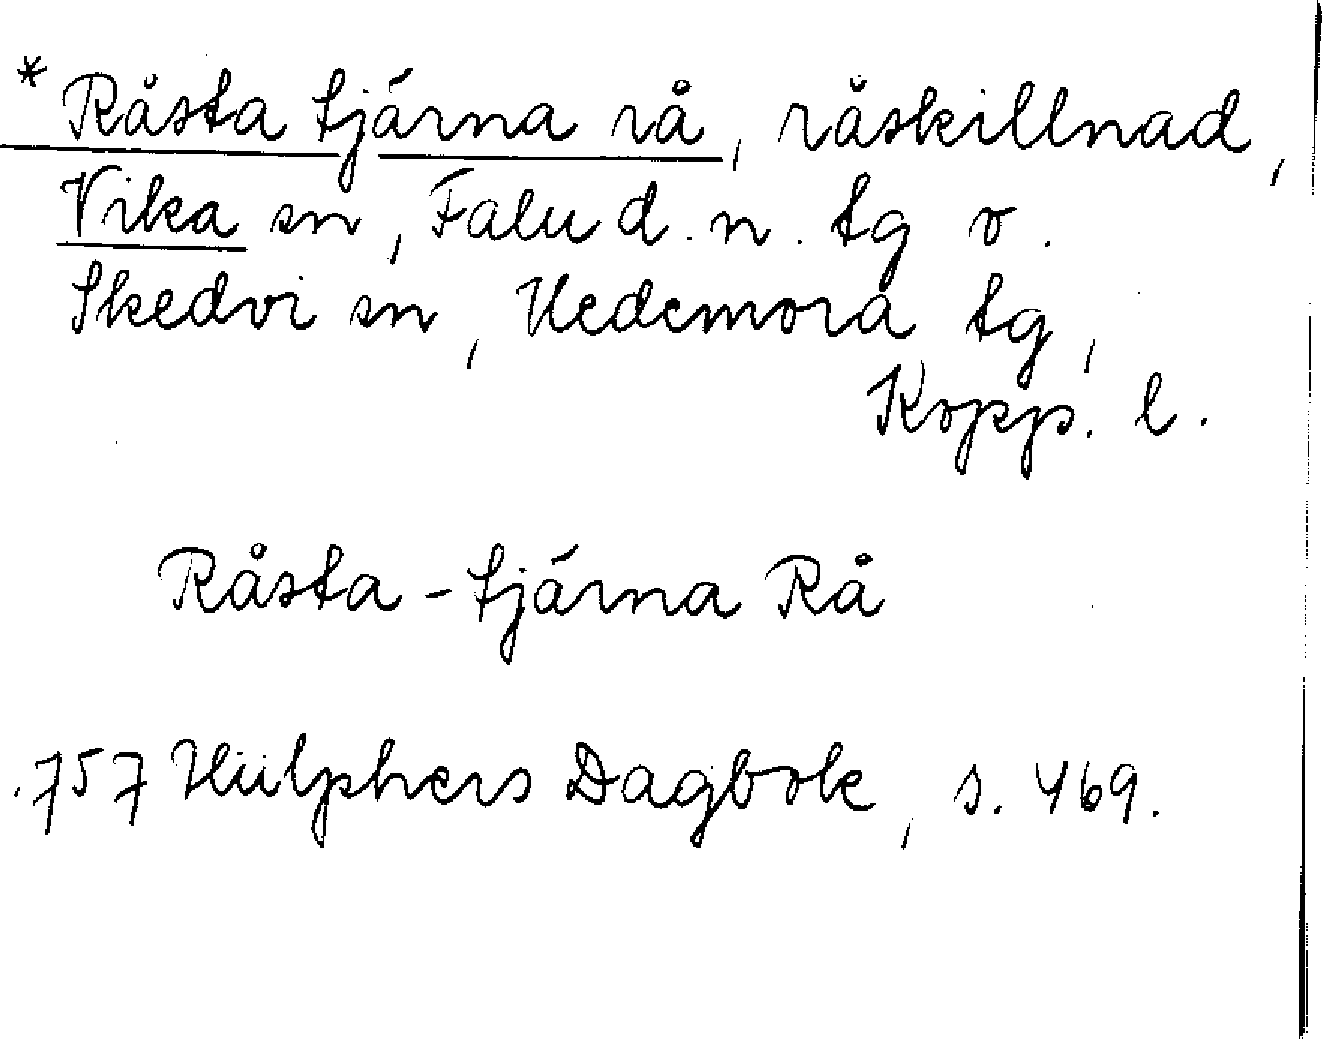 *Råsta tjärna rå, råskillnad,
Vika sn, Falu d. n. tg o.
Skedvi sn, Hedemora tg,
Kopp. l.
Råsta-tjärna Rå
.757 Hülphers Dagbok, s. 469.